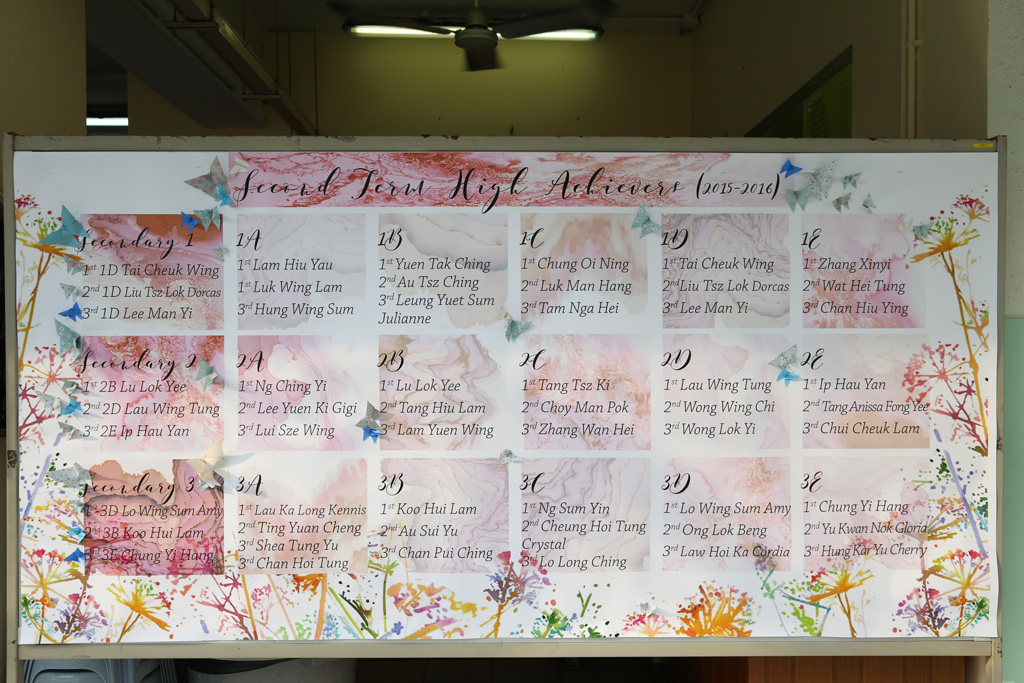 Second Term High Achievers (2015-2016)
Secondary 1
1st 1D Tai Cheuk Wing
2nd 1D Liu Tsz Lok Dorcas
3rd 1D Lee Man Yi
1A
1st Lam Hiu Yau
1st Luk Wing Lam
3rd Hung Wing Sum
1B
1st Yuen Tak Ching
2nd Au Tsz Ching
3rd Leung Yuet Sum
Julianne
1C
1st Chung Oi Ning
2nd Luk Man Hang
3rd Tam Nga Hei
1D
1st Tai Cheuk Wing
2nd Liu Tsz Lok Dorcas
3rd Lee Man Yi
1E
1st Zhang Xinyi
2nd Wat Hei Tung
3rd Chan Hiu Ying
Secondary 2
1st 2B Lu Lok Yee
2nd 2D Lau Wing Tung
3rd 2E Ip Hau Yan
2A
1st Ng Ching Yi
2nd Lee Yuen Ki Gigi
3rd Lui Sze Wing
2B
1st Lu Lok Yee
2nd Tang Hiu Lam
3rd Lam Yuen Wing
2C
1st Tang Tsz Ki
2nd Choy Man Pok
3rd Zhang Wan Hei
2D
1st Lau Wing Tung
2nd Wong Wing Chi
3rd Wong Lok Yi
2E
1st Ip Hau Yan
2nd Tang Anissa Fong Yee
3rd Chui Cheuk Lam
Secondary 3
1st 3D Lo Wing Sum Amy
2nd 3B Koo Hui Lam
3rd 3E Chung Yi Hang
3A
1st Lau Ka Long Kennis
2nd Ting Yuan Cheng
3rd Shea Tung Yu
3rd Chan Hoi Tung
3B
1st Koo Hui Lam
2nd Au Sui Yu
3rd Chan Pui Ching
3C
1st Ng Sum Yin
2nd Cheung Hoi Tung
Crystal
3rd Lo Long Ching
3D
1st Lo Wing Sum Amy
2nd Ong Lok Beng
3rd Law Hoi Ka Cordia
3E
1st Chung Yi Hang
2nd Yu Kwan Nok Gloria
3rd Hung Kar Yu Cherry